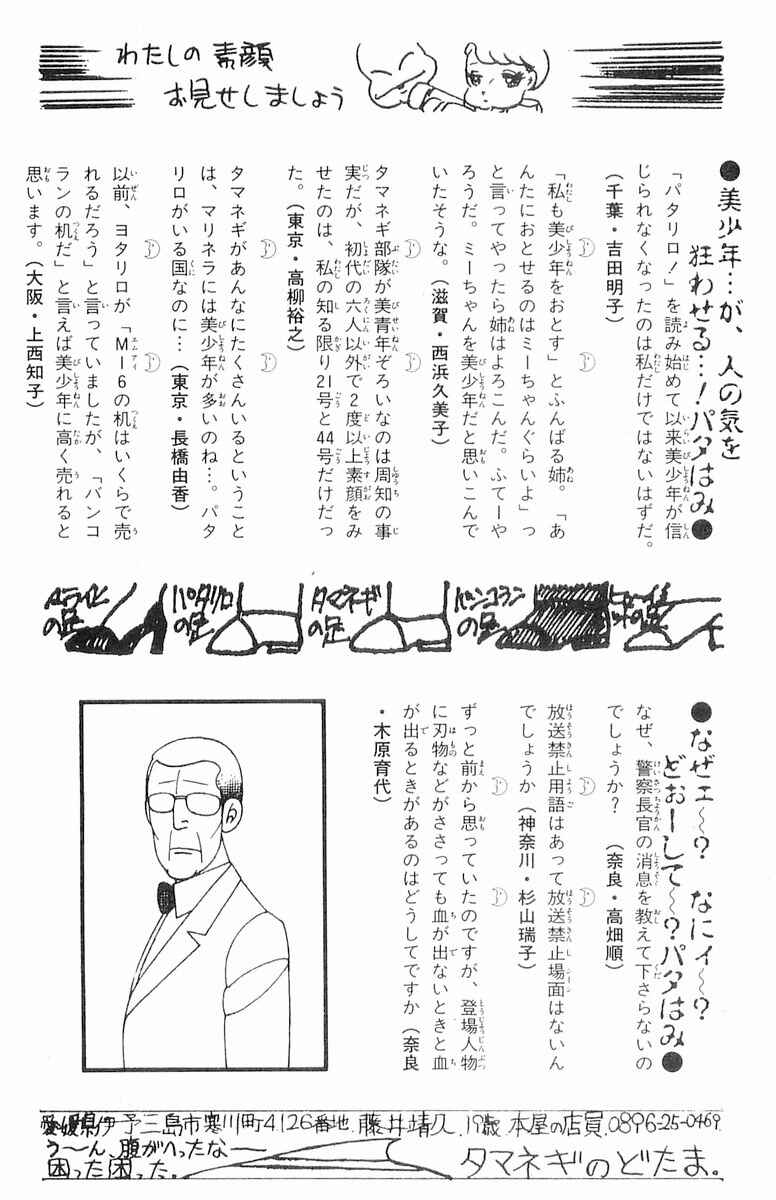 わたしの素顔
お見せしましょう
●美少年…が、人の気を
狂わせる…!パタはみ●
「パタリロ!」を読み始めて以来美少年が信
じられなくなったのは私だけではないはずだ。
(千葉・吉田明子)
「私も美少年をおとす」とふんばる姉。「あ
んたにおとせるのはミーちゃんぐらいよ」っ
と言ってやったら姉はよろこんだ。ふてーや
ろうだ。ミーちゃんを美少年だと思いこんで
いたそうな。(滋賀・西浜久美子)
タマネギ部隊が美青年ぞろいなのは周知の事
実だが、初代の六人以外で2度以上素顔をみ
せたのは、私の知る限り21号と44号だけだっ
た。(東京・高柳裕之)
タマネギがあんなにたくさんいるということ
は、マリネラには美少年が多いのね…。パタ
リロがいる国なのに…(東京・長橋由香)
以前、ヨタリロが「MI6の机はいくらで売
れるだろう」と言っていましたが、「バンコ
ランの机だ」と言えば美少年に高く売れると
思います。(大阪・上西知子)
パタリロ
の足
タマネギ
の足
バンコラン
の足
●なぜェ〜? なにィ〜?
どぉーして〜?パタはみ●
なぜ、警察長官の消息を教えて下さらないの
でしょうか? (奈良・高畑順)
放送禁止用語はあって放送禁止場面はないん
でしょうか(神奈川・杉山瑞子)
ずっと前から思っていたのですが、登場人物
に刃物などがささっても血が出ないときと血
が出るときがあるのはどうしてですか(奈良
・木原育代)
愛媛県伊予三島市寒川町4126番地.藤井靖久.19歳.本屋の店員.0896-25-0469
う〜ん、腹がへったなー
困った困った。
タマネギのどたま。